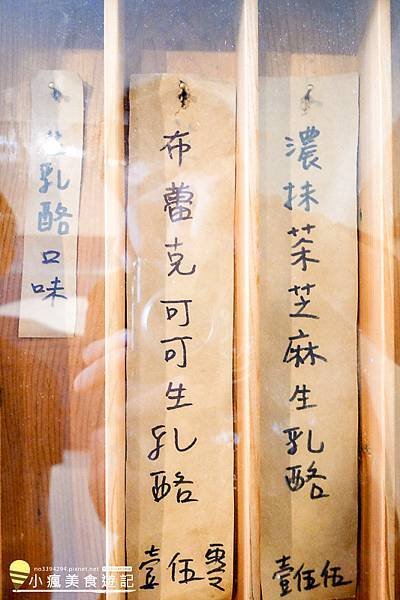 濃抹茶芝麻生乳酪
壹伍伍
布蕾克可可生乳酪
壹伍零
生乳酪口味
no3394294.pixnet.net
小瘋美食遊記